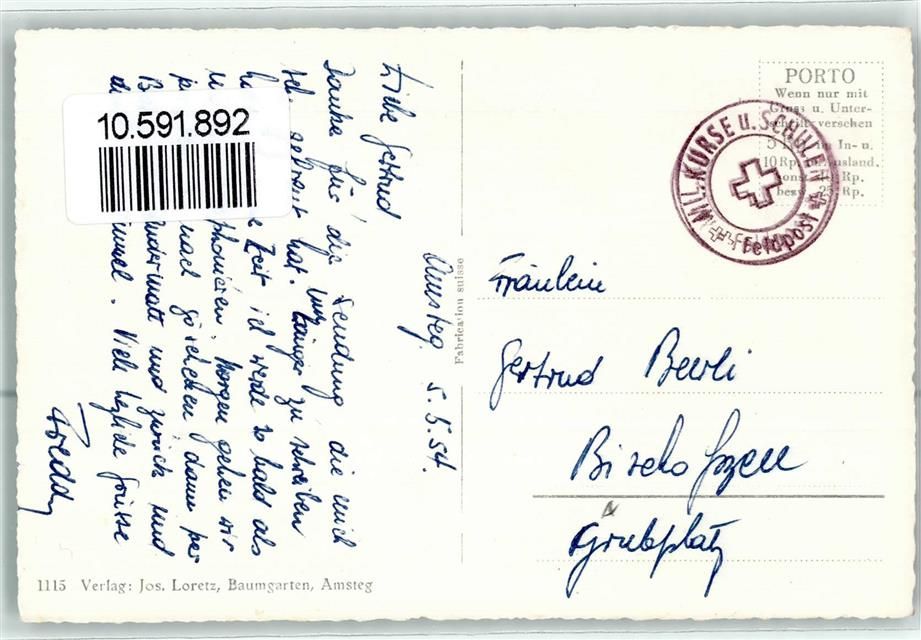 Amsteg. 5.5.54.
Liebe Gertrud
Danke für die Sendung die mich
sehr gefreut hat. länger zu schreiben
Zeit ich werde so bald als
phonieren. Morgen gehen wir
nach göschenen dann per
Andermatt und zurück und
Viele herzliche Grüsse
Freddy
10.591.892
Fabrication suisse
1115 Verlag: Jos. Loretz, Baumgarten, Amsteg
PORTO
Wenn nur mit
Gruss u. Unter-
schrift versehen
5 Rp. im In- u.
10 Rp. Ausland.
sonst Rp.
bezw. 25 Rp.
MIL. KURSE U. SCHULEN
Feldpost
Fräulein
Gertrud Beerli
Bischofszell
Grubplatz